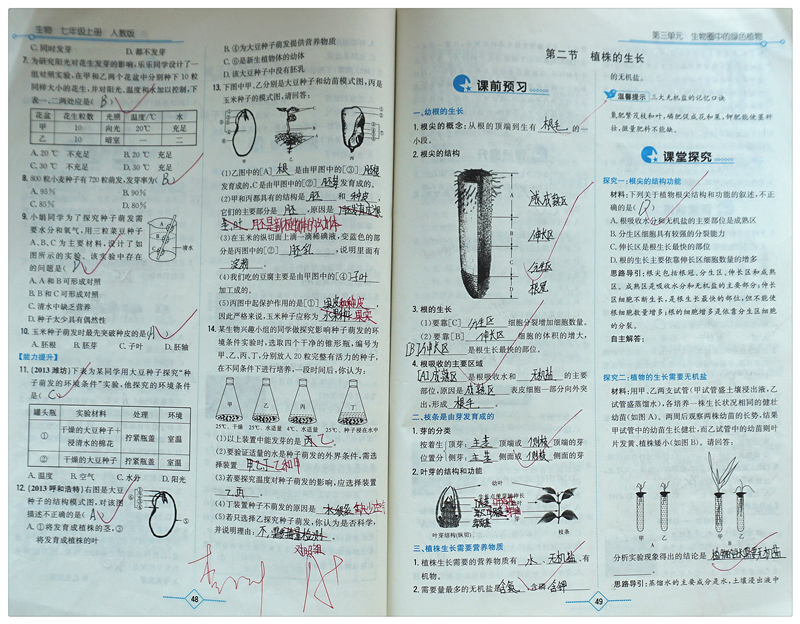 生物 七年级上册 人教版
C. 同时发芽 D. 都不发芽
7. 为研究阳光对花生发芽的影响,乐乐同学设计了一
组对照实验,在甲和乙两个花盆中分别种下10粒
同样大小的花生,并对阳光、温度和水加以控制,下
表一、二两处应是( B )
花盆 花生粒数 光照 温度/℃ 水
甲 10 向光 20℃ 充足
乙 10 暗室 一 二
A. 20℃ 不充足 B. 20℃ 充足
C. 30℃ 不充足 D. 30℃ 充足
8. 800粒小麦种子有720粒萌发,发芽率为( B )
A. 95% B. 90%
C. 85% D. 80%
9. 小鹏同学为了探究种子萌发需
要水分和氧气,用三粒菜豆种子
A、B、C为主要材料,设计了如
图所示的实验。该实验中存在
的问题是( )
A. A和B可形成对照
B. B和C可形成对照
C. 清水中缺乏营养
D. 种子太少具有偶然性
清水
10. 玉米种子萌发时最先突破种皮的是( A )
A. 胚根 B. 胚芽 C. 子叶 D. 胚轴
【能力提升】
11. (2013 潍坊)下表为某同学用大豆种子探究“种
子萌发的环境条件”实验,他探究的环境条件
是( C )
罐头瓶 实验材料 处理 环境
① 干燥的大豆种子+浸清水的棉花 拧紧瓶盖 室温
② 干燥的大豆种子 拧紧瓶盖 室温
A. 温度 B. 空气 C. 水分 D. 阳光
12. (2013 呼和浩特)右图是大豆
种子的结构模式图,对该图
描述不正确的是( A )
A. ①将发育成植株的茎,③
将发育成植株的叶
48
B. ④为大豆种子萌发提供营养物质
C. ⑥是新生植物的幼体
D. 该大豆种子中没有胚乳
13. 下图中甲、乙分别是大豆种子和幼苗模式图,丙是
玉米种子的模式图,请回答:
甲 乙 丙
(1)乙图中的[A] 根 是由甲图中的[③] 胚根
发育成的,C是由甲图中的[②] 胚芽 发育成的。
(2)甲和丙都具有的结构是 胚 和 种皮 ,
它们的主要部分是 胚 ,原因是
(3)在玉米的纵切面上滴一滴稀碘液,变蓝色的部
分是丙图中的[②] 胚乳 ,说明里面有
淀粉 。
(4)我们吃的豆腐主要是由甲图中的[④] 子叶
加工成的。
(5)丙图中起保护作用的是[①] 果皮和种皮 ,
因此严格来说,玉米种子应称为 果实
14. 某生物兴趣小组的同学做探究影响种子萌发的环
境条件实验时,选取四个干净的锥形瓶,编号为
甲、乙、丙、丁,分别放入20粒完整有活力的种子,
在不同条件下进行培养,一段时间后,你认为:
甲 乙 丙 丁
25℃、干燥 25℃、水适量 4℃、水适量 25℃、种子浸在水中
(1)以上装置中能发芽的是 乙 。
(2)要验证适量的水是种子萌发的外界条件,需选
择装置 甲和乙 。
(3)若要探究温度对种子萌发的影响,应选择装置
乙丙 。
(4)丁装置种子不萌发的原因是
(5)若只选择乙探究种子萌发,你认为是否科学,
并说明理由: 不
第三单元 生物圈中的绿色植物
第二节 植株的生长
课前预习
一、幼根的生长
1. 根尖的概念:从根的顶端到生有 根毛 的一
小段。
2. 根尖的结构
A
B
C
D
成熟区
伸长区
分生区
根冠
3. 根的生长
(1)要靠[C] 分生区 细胞分裂增加细胞数量。
(2)要靠[B] 伸长区 细胞的体积的增大,
[B]伸长区 是根生长最快的部位。
4. 根吸收的主要区域
[A]成熟区 是根吸收水和 无机盐 的主要
部位,原因是 成熟区 表皮细胞一部分向外突
出,形成 根毛 。
二、枝条是由芽发育成的
1. 芽的分类
按着生 顶芽: 主茎 顶端或 侧枝 顶端的芽
位置分 侧芽: 主茎 侧面或 侧枝 侧面的芽
2. 叶芽的结构和功能
幼叶
叶芽结构(纵切) 枝条
三、植株生长需要营养物质
1. 植株生长需要的营养物质有 水 、 无机盐 、有
机物。
2. 需要量最多的无机盐是 含氮 、 含磷 、 含钾
49
的无机盐。
温馨提示 三大无机盐的记忆口诀
氮肥繁茂枝和叶,磷肥促成花和果,钾肥能使茎秆
壮,微量肥料不能缺。
课堂探究
探究一:根尖的结构功能
材料:下列关于植物根尖结构和功能的叙述,不正
确的是( D )
A. 根吸收水分和无机盐的主要部位是成熟区
B. 分生区细胞具有较强的分裂能力
C. 伸长区是根生长最快的部位
D. 根的生长主要依靠伸长区细胞数量的增多
思路导引:根尖包括根冠、分生区、伸长区和成熟
区。成熟区是吸收水分和无机盐的主要部分;伸长
区细胞不断生长,是根生长最快的部位,但不能使
根细胞数量增多;根的细胞增多是依靠分生区细胞
的分裂。
自主解答:
探究二:植株的生长需要无机盐
材料:用甲、乙两支试管(甲试管盛土壤浸出液,乙
试管盛蒸馏水),各培养一株生长状况相同的健壮
幼苗(如图A)。两周后观察两株幼苗的长势,结果
甲试管中的幼苗生长健壮,而乙试管中的幼苗则叶
片发黄,植株矮小(如图B)。请回答:
甲 乙 甲 乙
A B
分析实验现象得出的结论是 植物的生长需要无机盐
思路导引:蒸馏水的主要成分是水,土壤浸出液中